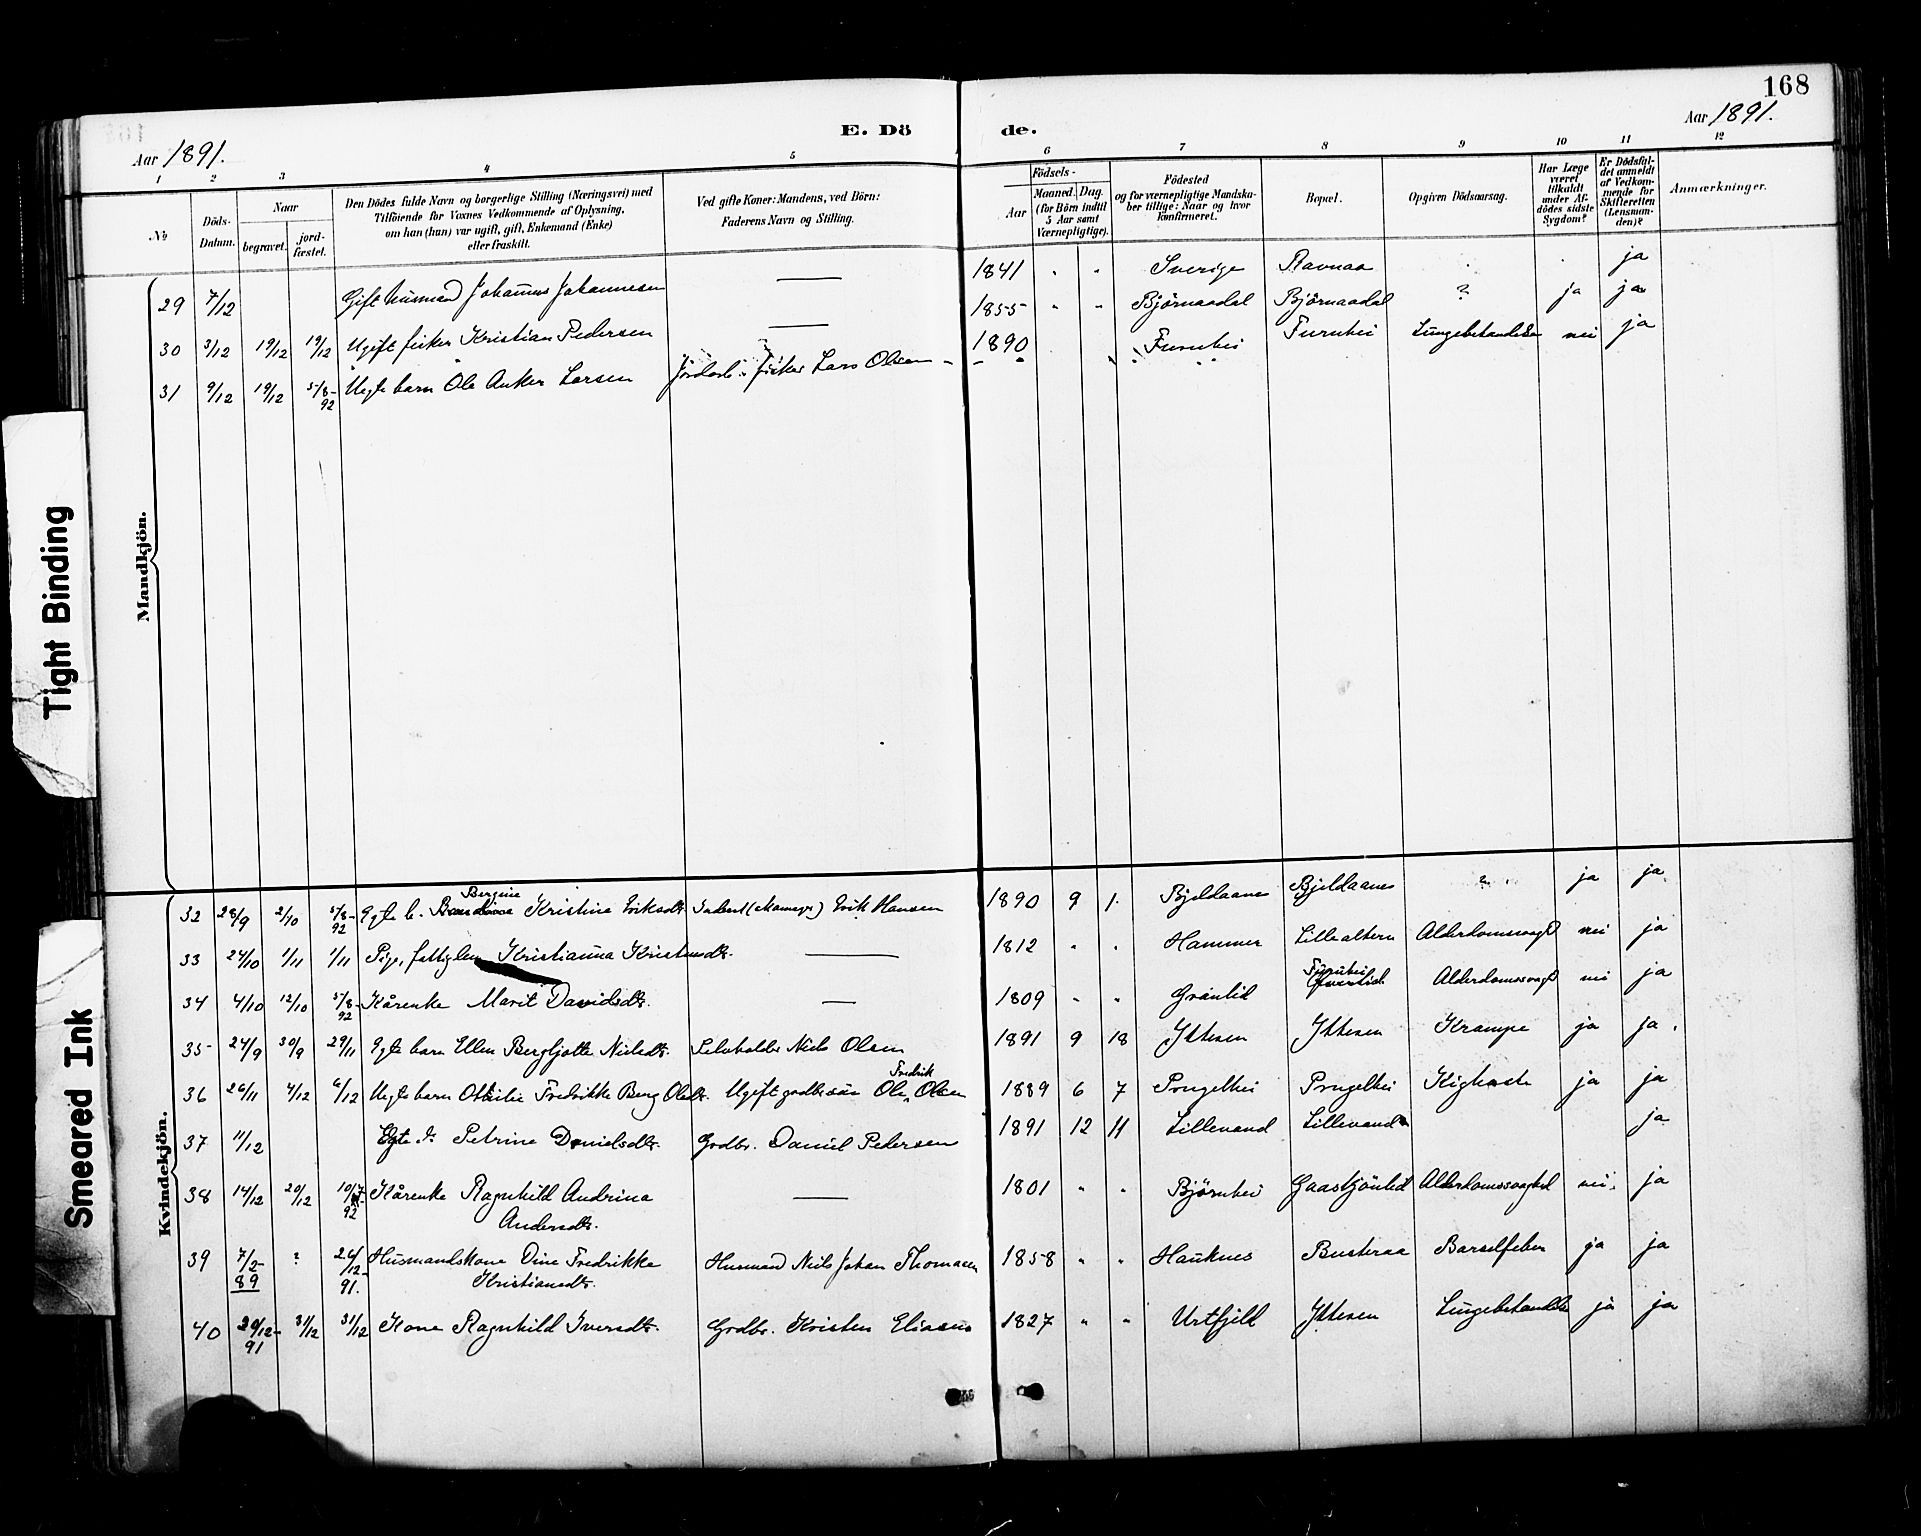 168
Aar 1891.
E. Dö de.
Aar 1891.
1 2 3 4 5 6 7 8 9 10 11 12
No
Döds-Datum.
Naar
begravet.
jord-fæstet.
Den Dödes fulde Navn og borgerlige Stilling (Næringsvei) med
Tilföiende for Voxnes Vedkommende af Oplysning,
om han (hun) var ugift, gift, Enkemand (Enke)
eller fraskilt.
Ved gifte Koner: Mandens, ved Börn:
Faderens Navn og Stilling.
Födsels-
Aar
Maaned. Dag.
(for Börn indtil
5 Aar samt
Værnepligtige).
Födested
og for værnepligtige Mandska-
ber tillige: Naar og hvor
konfirmeret.
Bopæl.
Opgiven Dödsaarsag.
Har Læge
været
tilkaldt
under Af-
dödes sidste
Sygdom?
Er Dödsfal-
det anmeldt
af Vedkom-
mende for
Skifteretten
(Lensman-
den)?
Anmærkninger.
Mandkjön.
29 7/12 Gift husmand Johannes Johannesen — 1841 " " Sverige Ravnaa ja
30 3/12 19/12 19/12 Ugift fisker Kristian Pedersen — 1855 " " Björnaadal Björnaadal ? ja ja
31 9/12 19/12 5/8-92 Uegte barn Ole Anker Larsen fisker Lars Olsen 1890 Furuhei Furuhei Lungebetændelse nei ja
Kvindekjön.
32 28/9 2/10 5/8-92 Egte b. Bergine Kristine Eriksdtr. Erik Hansen 1890 9 1 Bjeldaanes Bjeldaanes ? ja ja
33 24/10 1/11 1/11 Pige, fattiglem Kristianna Kristensdtr. — 1812 " " Hammer Lillealtern Alderdomssvaghd nei ja
34 4/10 12/10 5/8-92 Kårenke Marit Davidsdtr. — 1809 " " Grånlid Furuhei Alderdomssvaghd nei ja
35 24/9 30/9 29/11 Egte barn Ellen Bergljotte Nielsdtr. Selveholder Niels Olsen 1891 9 18 Ytteren Ytteren Krampe ja ja
36 26/11 4/12 6/12 Uegte barn Ottilie Fredrikke Berg Olsdtr. Ugift gaardbrsøn Ole Fredrik Olsen 1889 6 7 Prugelhei Prugelhei Kighoste ja ja
37 11/12 Egte d. Petrine Danielsdtr. Grdbr. Daniel Pedersen 1891 12 11 Lillevand Lillevand ja
38 14/12 20/12 10/7-92 Kårenke Ragnhild Andrina
Andersdtr. — 1801 " " Björnhei Gaastjönlid Alderdomssvaghed nei ja
39 7/2-89 ? 26/12-91. Husmandskone Dine Fredrikke
Kristiansdtr. Husmand Niels Johan Thomasen 1858 " " Hauknes Busteraa Barselfeber ja ja
40 29/12-91 31/12 31/12 Kone Ragnhild Iversdtr. Grdbr. Kristen Eliasen 1827 " " Urtfjeld Ytteren Lungebetændelse ja ja
Tight Binding
Smeared Ink